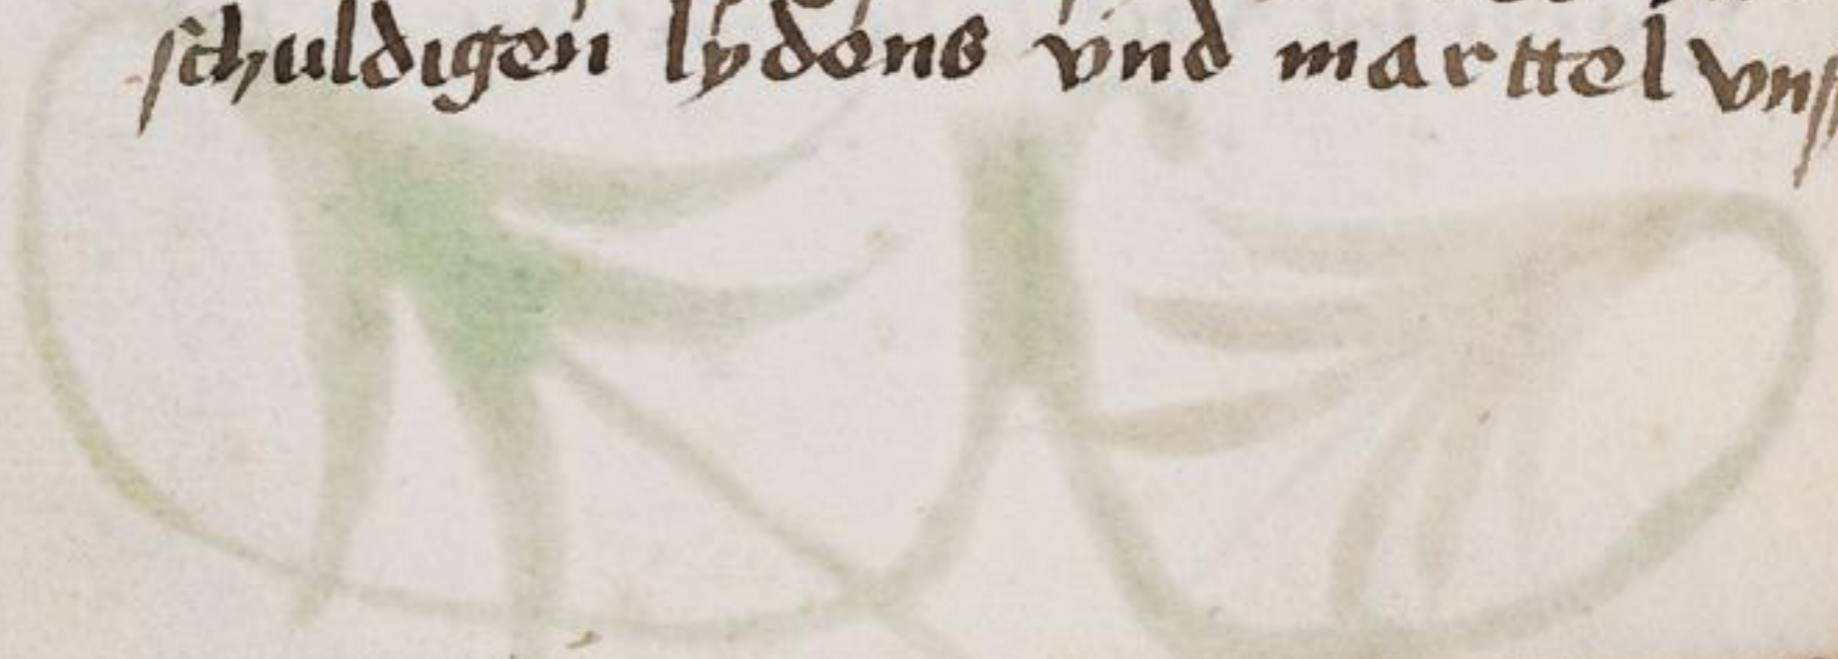 schuldigen lydens vnd marttel vns